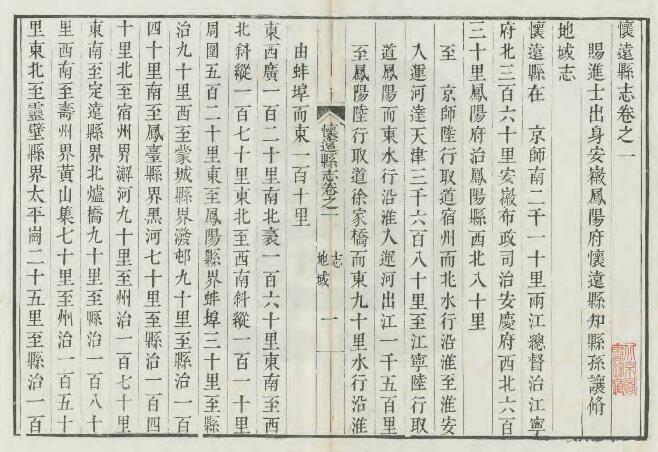 懷遠縣志卷之一
賜進士出身安徽鳳陽府懷遠縣知縣孫讓脩
地域志
懷遠縣在　京師南二千一十里兩江總督治江寧
府北三百六十里安徽布政司治安慶府西北六百
三十里鳳陽府治鳳陽縣西北八十里
至　京師陸行取道宿州而北水行沿淮至淮安
入運河達天津三千六百八十里至江寧陸行取
道鳳陽而東水行沿淮入運河出江一千五百里
至鳳陽陸行取道徐家橋而東九十里水行沿淮
懷遠縣志卷之一
志
地域
一
由蚌埠而東一百十里
東西廣一百二十里南北袤一百六十里東南至西
北斜縱一百七十里東北至西南斜縱一百一十里
周圍五百二十里東至鳳陽縣界蚌埠三十里至縣
治九十里西至蒙城縣界潑邨九十里至縣治一百
四十里南至鳳臺縣界黑河七十里至縣治一百四
十里北至宿州界澥河九十里至州治一百七十里
東南至定遠縣界北爐橋九十里至縣治一百八十
里西南至壽州界黃山集七十里至州治一百五十
里東北至靈壁縣界太平崗二十五里至縣治一百